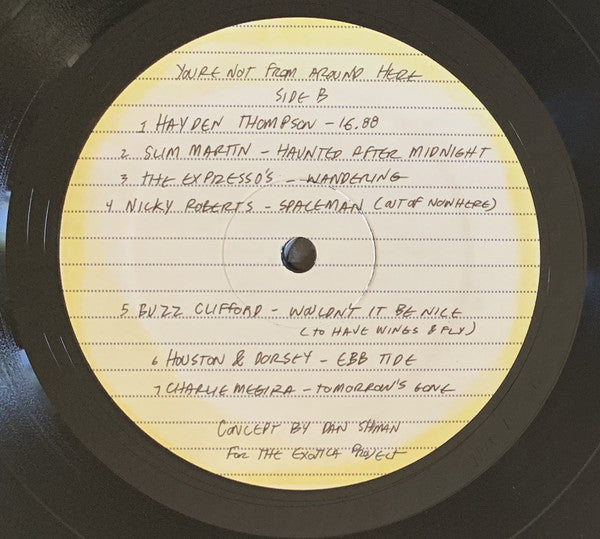 YOU'RE NOT FROM AROUND HERE
SIDE B
1 HAYDEN THOMPSON - 16.88
2 SLIM MARTIN - HAUNTED AFTER MIDNIGHT
3 THE EXPRESSO'S - WANDERING
4 NICKY ROBERTS - SPACEMAN (OUT OF NOWHERE)
5 BUZZ CLIFFORD - WOULDN'T IT BE NICE
(TO HAVE WINGS & FLY)
6 HOUSTON & DORSEY - EBB TIDE
7 CHARLIE MEGIRA - TOMORROW'S GONE
CONCEPT BY DAN SHIMAN
FOR THE EXOTICA PROJECT